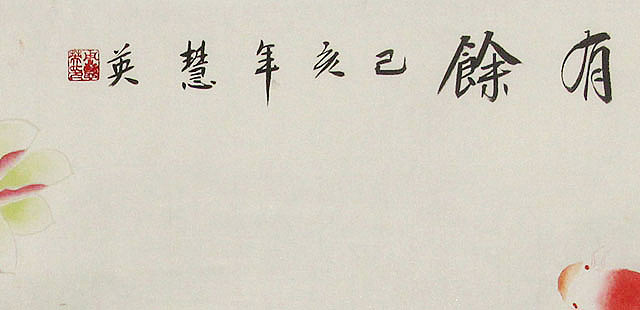 有餘己亥年慧英